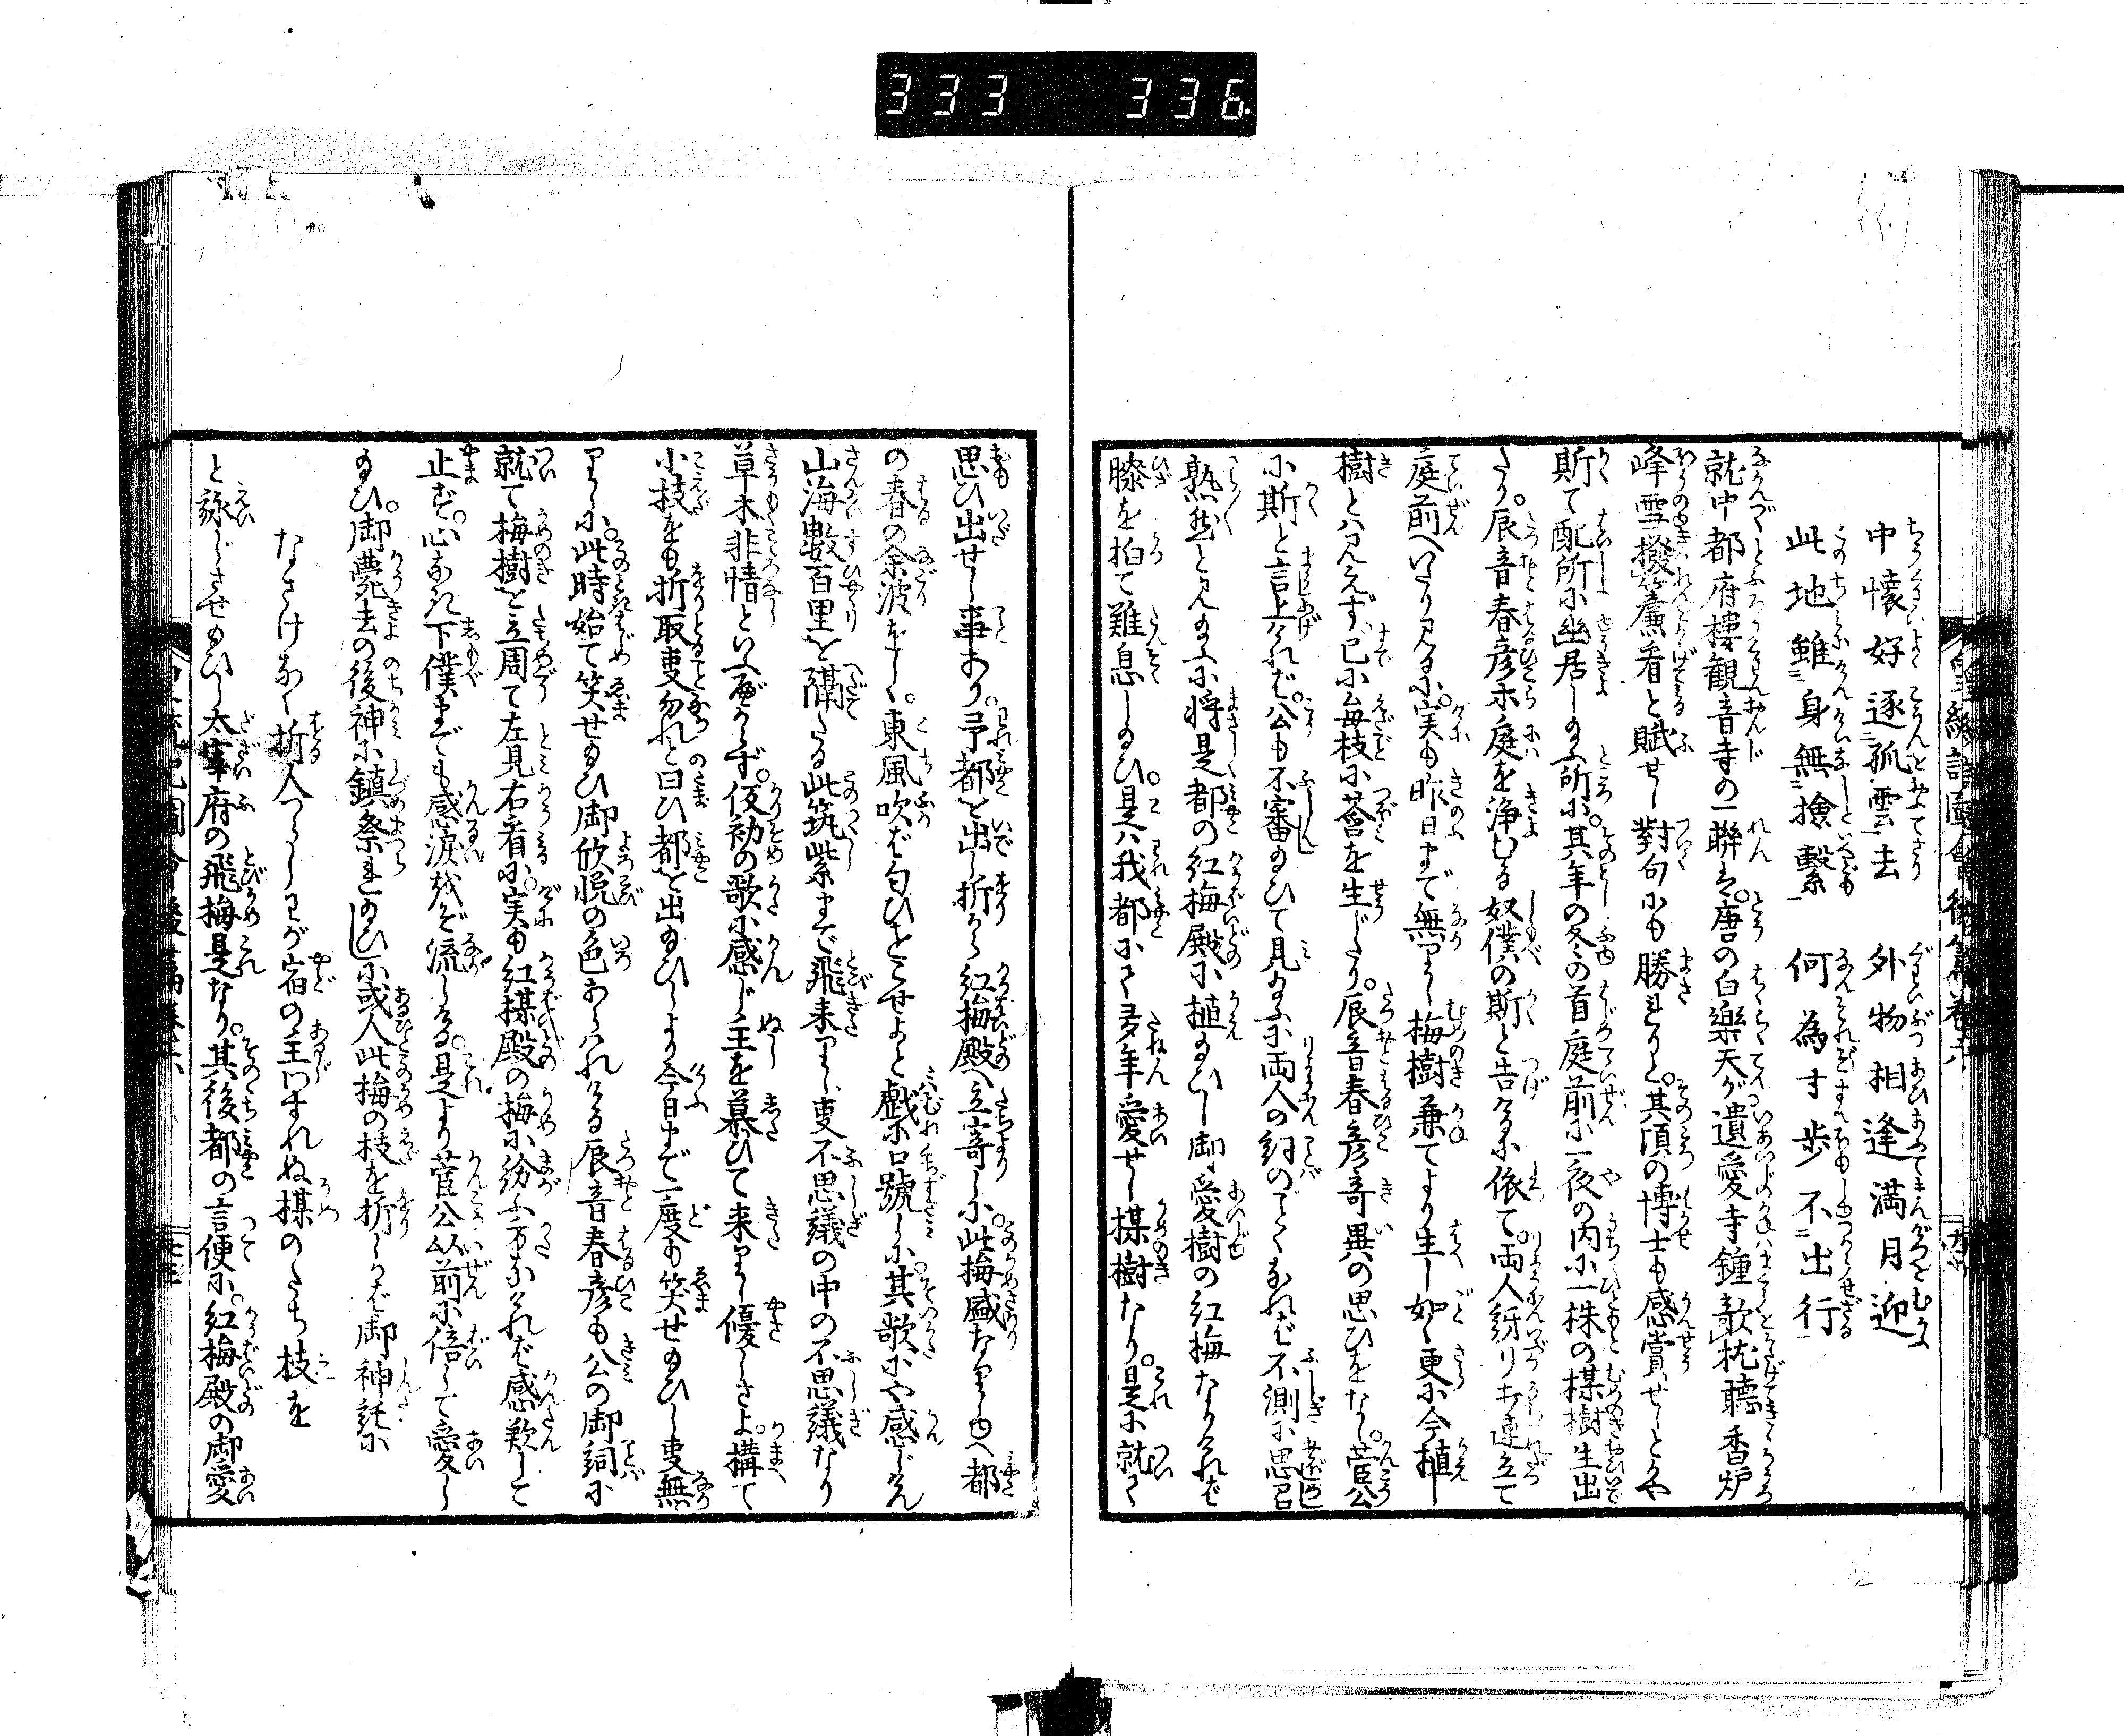 333 336
中懐好逐孤雲去 外物相逢満月迎
此地雖身無撿繫 何為寸歩不出行
就中都府樓観音寺の一聯は。唐の白樂天が遺愛寺鐘欹枕聽香炉
峰雪撥簾看と賦せし對句にも勝れりと。其頃の博士も感賞せしとかや
斯て配所に幽居し給ふ所に。其年の冬の首庭前に一夜の内に一株の楳樹生出
たり。辰音春彦ホ庭を浄むる奴僕の斯と告けるに依て。両人紛り井連立て
庭前へいたり見るに。実も昨日まで無りし梅樹兼てより生し如く更に今植し
樹とハ見えず已に毎枝に莟を生じたり。辰音春彦竒異の思ひをなし。菅公
に斯と言上けれバ。公も不審給ひて見給ふに両人の詞のごくなれバ不測に思召
熟然と見給ふに将是都の紅梅殿に植給ひし御愛樹の紅梅なりけれバ
膝を拍て難息し給ひ。是ハ我都にて多年愛せし楳樹なり。是に就て
思ひ出せし事あり。予都を出し折から紅梅殿へ立寄しに。此梅盛なりしゆへ都
の春の余波をしく。東風吹バ匂ひをこせよと戯に口號しに。其歌にや感じけん
山海數百里を隔たる此筑紫まで飛来りし事不思議の中の不思議なり
草木非情といへどからず。仮初の歌に感じ主を慕ひて来りし優しさよ。構て
小枝をも折取事勿れと曰ひ都を出給ひしより今日まで一度も笑せ給ひし事無
りしに。此時始て笑せ給ひ御欣悦の色あらハれける辰音春彦も公の御詞に
就て梅樹を立周て左見右看に。実も紅楳殿の梅に紛ふ方なけれバ感歎して
止ず。心なき下僕までも感涙をぞ流しける。是より菅公以前に倍して愛し
給ひ。御薨去の後神に鎮祭まひしに或人此梅の枝を折しかバ御神託に
なさけなく折人つらしわが宿の主わすれぬ楳のたち枝を
と詠じさせ給ひし太宰府の飛梅是なり。其後都の言便に。紅梅殿の御愛